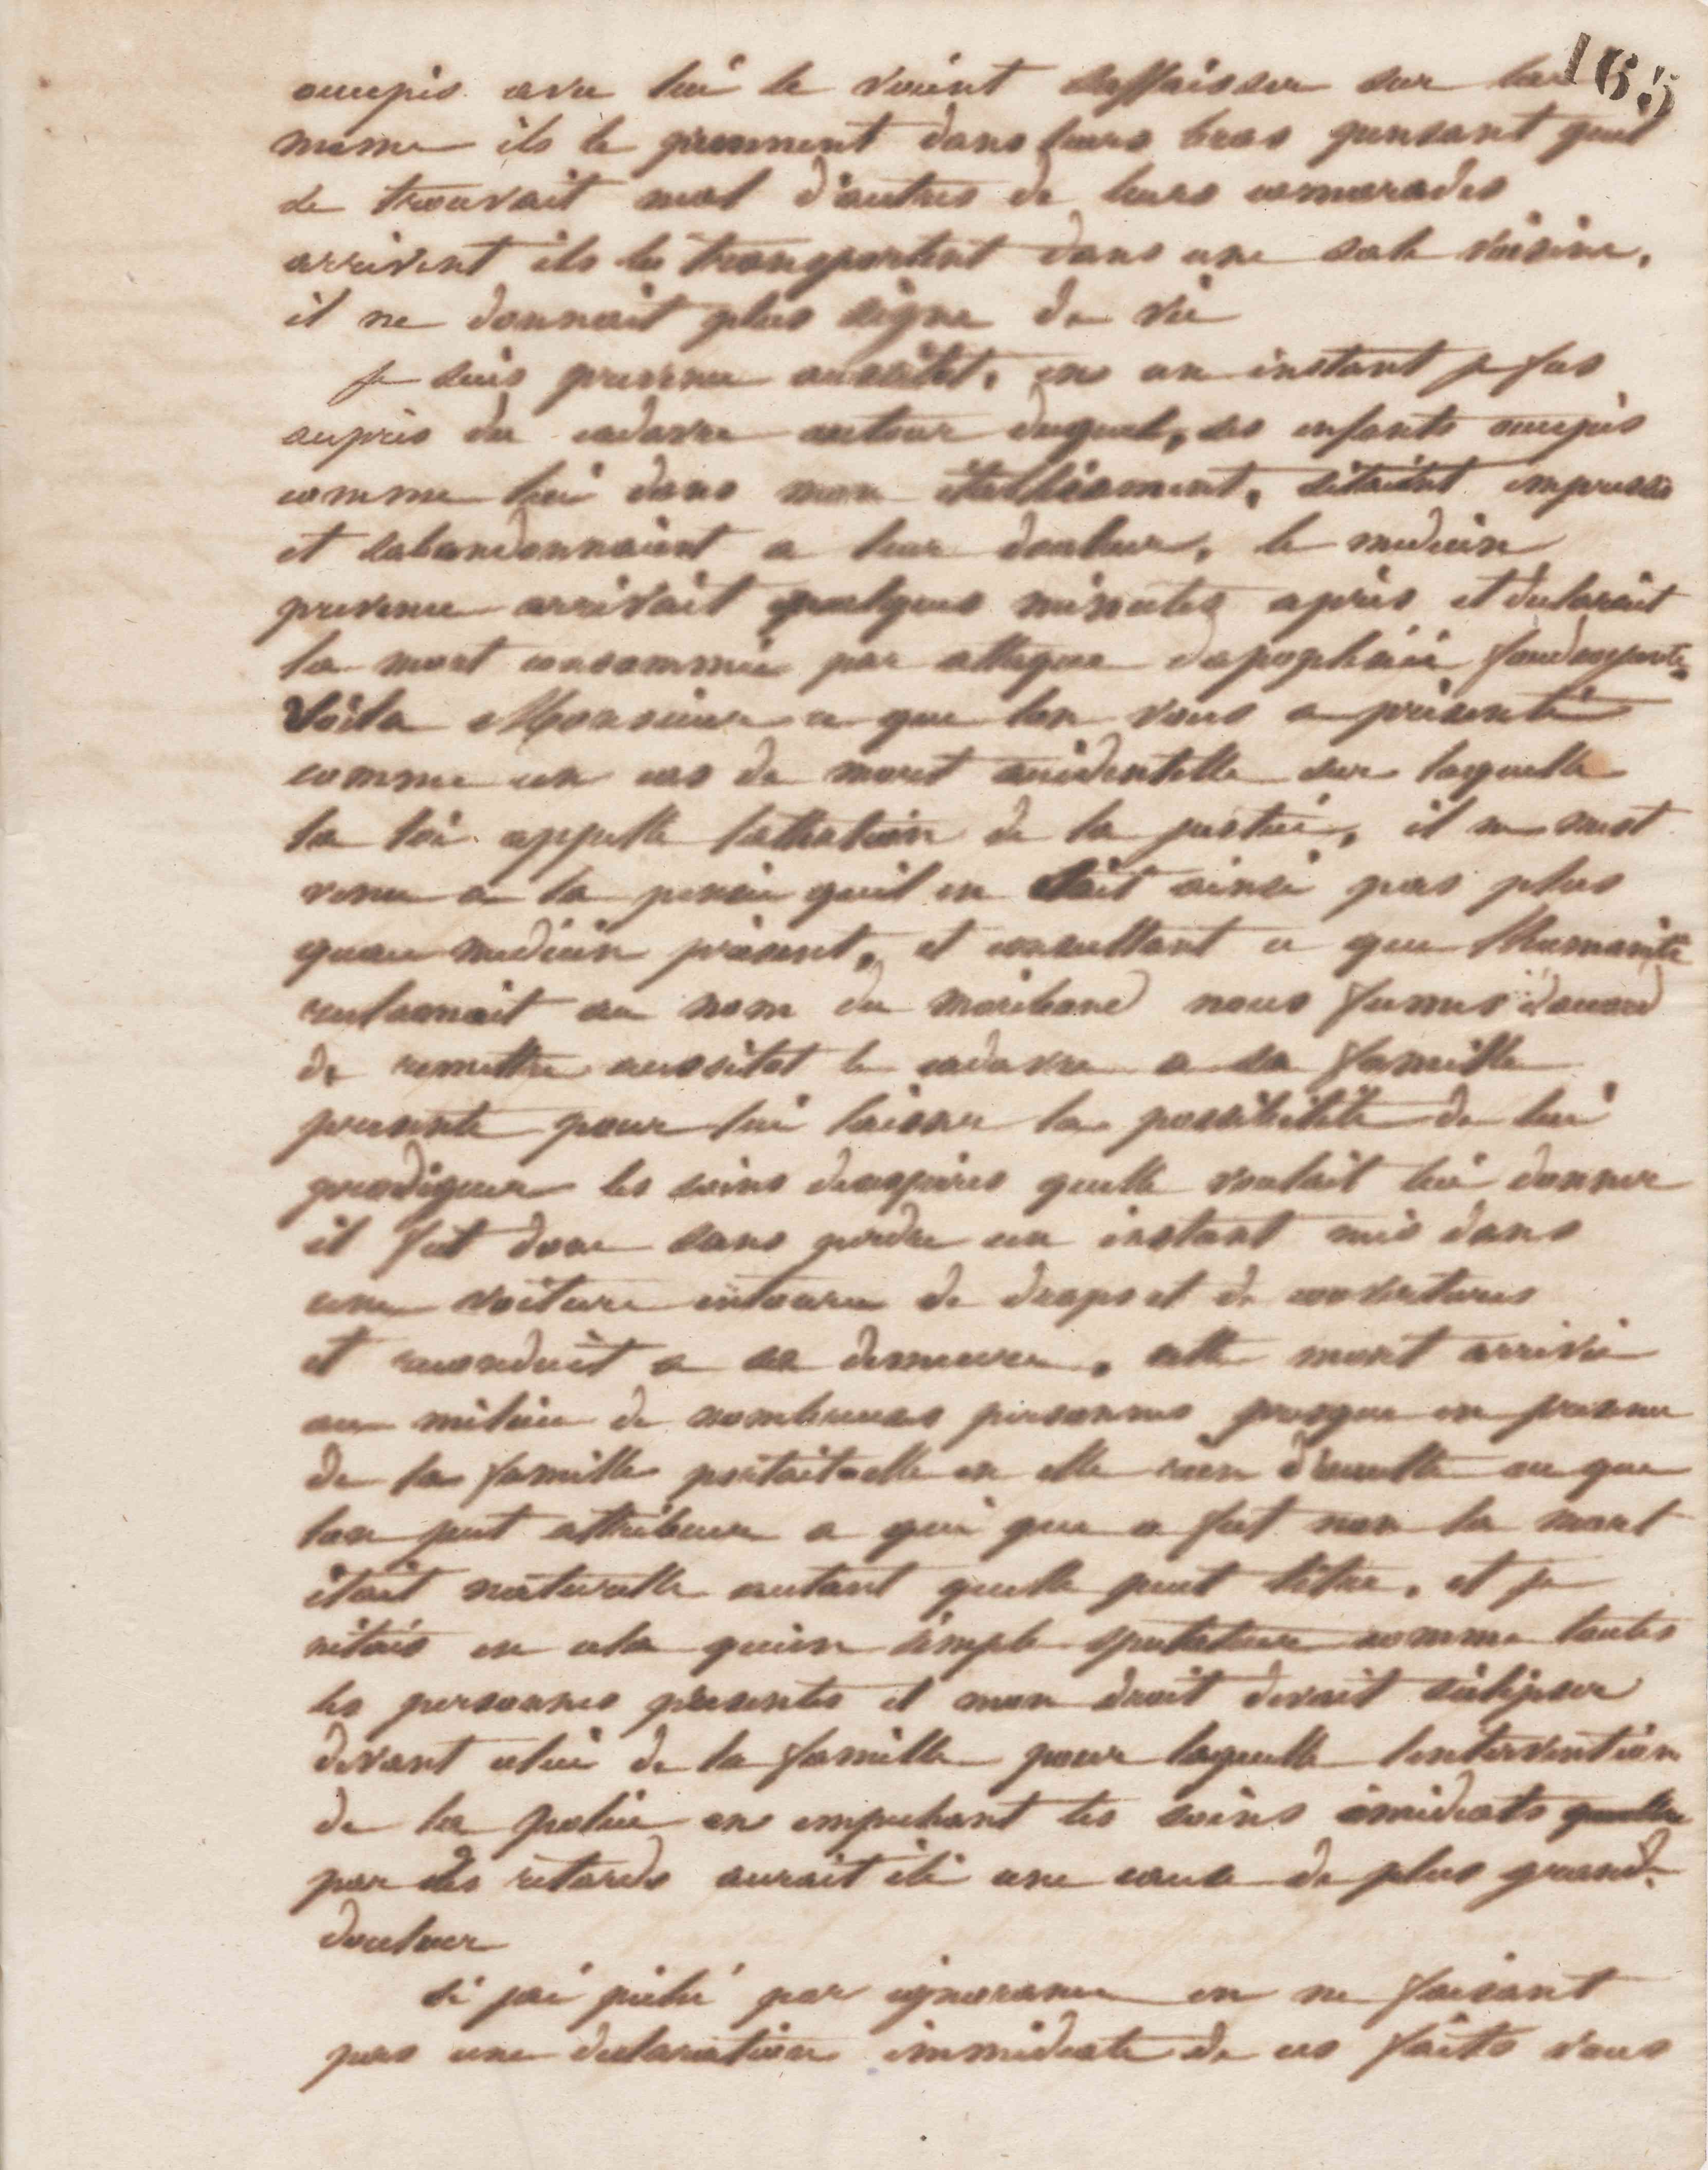 165
occupés avec lui le voient saffaisser sur lui
meme ils le prennent dans leurs bras pensant quil
se trouvait mal d'autres de leurs camarades
arrivent ils le transportent dans une sale voisine,
il ne donnait plus signe de vie
je suis prevenu aussitot, en un instant je fus
aupres du cadavre autour duquel, ses enfants occupés
comme lui dans mon établissement, sétaient empressés
et sabandonnaient a leur douleur, le medecin
prevenu arrivait quelques minutes après et declarait
la mort consommée par attaque dapoplexie foudroyante,
Voila Monsieur ce que lon vous a présenté
comme un cas de mort accidentelle sur laquelle
la loi appelle lattention de la justice, il ne mest
venu a la pensée quil en était ainsi pas plus
quau medecin présent, et consultant ce que lhumanité
reclamait au nom du moribond nous fumes d'accord
de remettre aussitot le cadavre a sa famille
presente pour lui laisser la possibilité de lui
prodiguer les soins desespérés quelle voulait lui donner
il fut donc sans perdre un instant mis dans
une voiture entouré de draps et de couvertures
et reconduit a sa demeure, cette mort arrivée
au milieu de nombreuses personnes presque en presence
de la famille portait-elle en elle rien d'occulte ou que
lon put attribuer a qui que ce fut non la mort
était naturelle autant quelle peut létre, et je
nétais en cela quun simple spectateur comme toutes
les personnes presentes et mon droit devait séclipser
devant celui de la famille pour laquelle lintervention
de la police en empechant les soins imidiats
par des retards aurait été une cause de plus grande
douleur
si jai péché par ignorance en ne faisant
pas une declaration immediate de ces faits vous